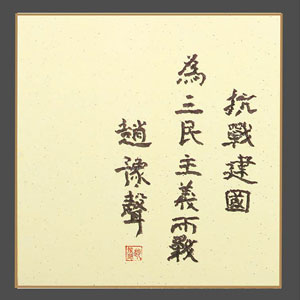 抗戰建國
為三民主義而戰
趙豫聲